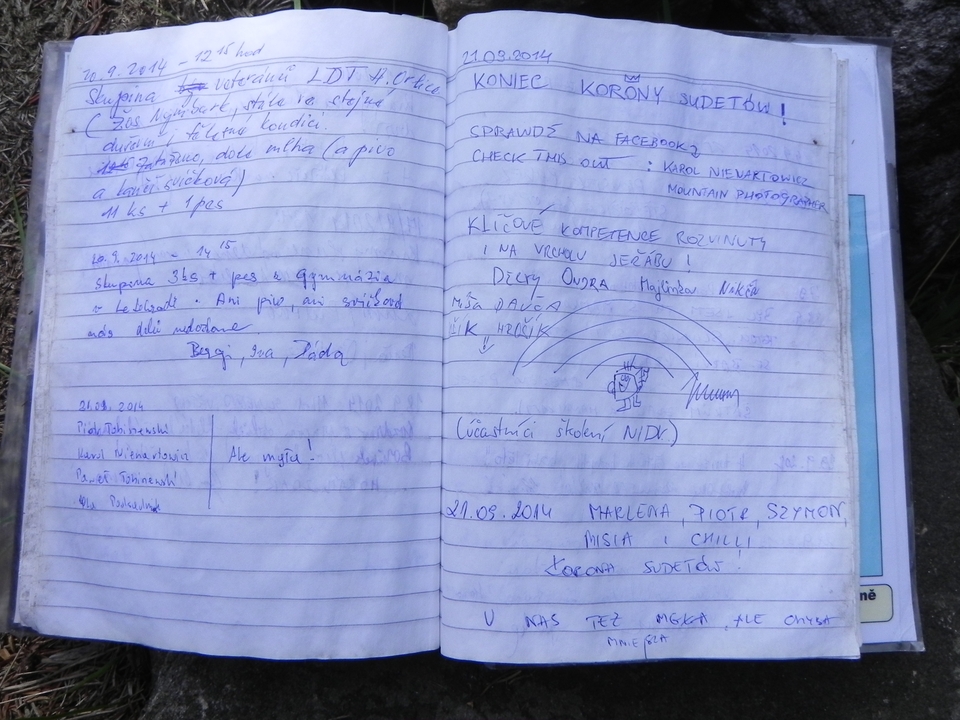 20.9.2014 - 12 15 hod
Skupina veteránů LDT H. Orlice
(Žas Nymburk, stále ve stejné
duševní, tělesné kondici.
Zataženo, dole mlha (a pivo
a končí svíčková)
11 ks + 1 pes
20.9.2014 - 14 15
skupina 3ks + pes z Gymnázia
v Letohradě. Ani pivo, ani svíčková
nás dolů nedostane
Bergi, Iva, Páďa
21.09.2014
Piotr Tobinewski
Karol Nienartowicz
Ale mgła!
Paweł Tobinewski
21.09.2014
KONIEC KORONY SUDETÓW!
SPRAWDŹ NA FACEBOOKU
CHECK THIS OUT : KAROL NIENARTOWICZ
MOUNTAIN PHOTOGRAPHER
KLÍČOVÉ KOMPETENCE ROZVINUTY
I NA VRCHOLU JEŘÁBU!
DECKY ONDRA Majlinka
MÍŠA
(účastníci školení NIDV)
21.09.2014 MARLENA, PIOTR, SZYMON,
MISIA I CHILLI
KORONA SUDETÓW!
U NAS TEŻ MGŁA, ALE CHYBA
MNIEJSZA
ně